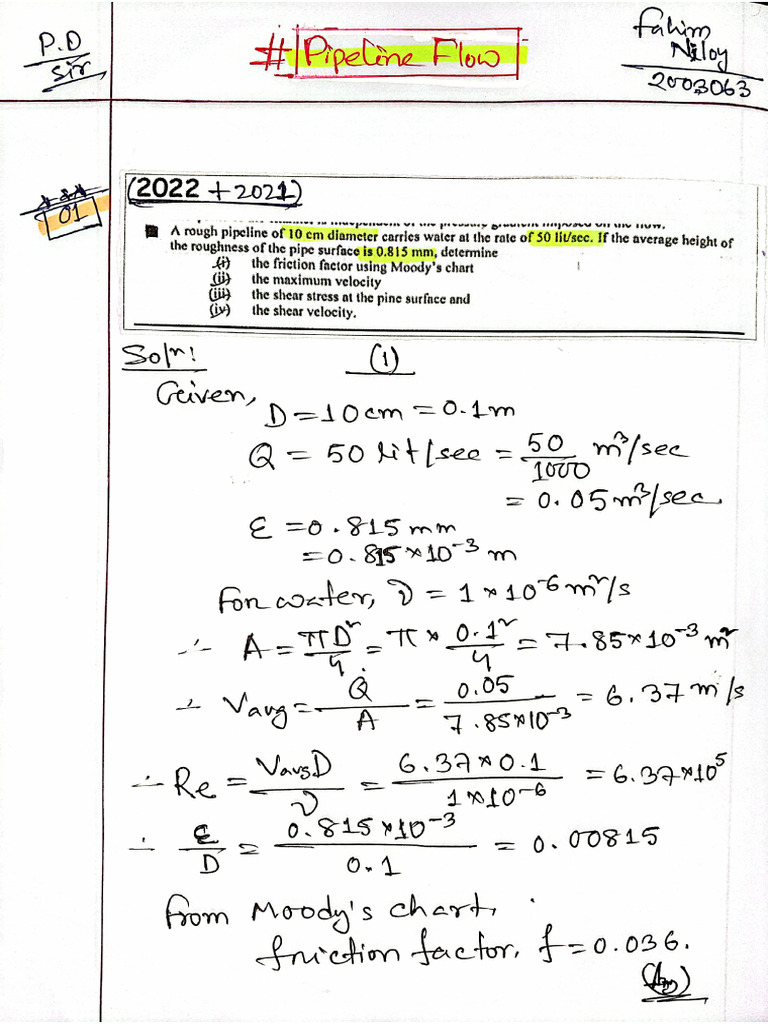 P.D
Sir
# Pipeline Flow
Fahim
Niloy
2003063
01
(2022 + 2021)
A rough pipeline of 10 cm diameter carries water at the rate of 50 lit/sec. If the average height of
the roughness of the pipe surface is 0.815 mm, determine
(i) the friction factor using Moody's chart
(ii) the maximum velocity
(iii) the shear stress at the pine surface and
(iv) the shear velocity.
Soln:
(1)
Given,
D = 10cm = 0.1m
Q = 50 lit/sec = 50/1000 m³/sec
= 0.05 m³/sec.
ε = 0.815 mm
= 0.815 × 10⁻³ m
For water, ν = 1 × 10⁻⁶ m²/s
∴ A = πD²/4 = π × 0.1²/4 = 7.85×10⁻³ m²
∴ Vavg = Q/A = 0.05/7.85×10⁻³ = 6.37 m/s
∴ Re = VavgD/ν = 6.37×0.1/1×10⁻⁶ = 6.37×10⁵
∴ ε/D = 0.815×10⁻³/0.1 = 0.00815
From Moody's chart,
friction factor, f = 0.036.